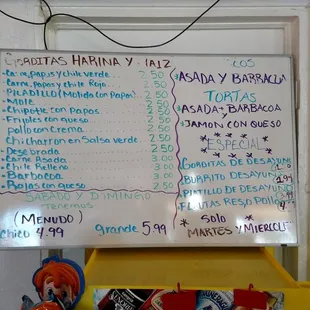 GORDITAS HARINA Y MAIZ
Carne, papas y chile verde. 2.50
Carne, papas y chile Rojo.. 2.50
PICADILLO (Molida con Papas) 2.50
Mole 2.50
Chipotle con papas 2.50
Frijoles con queso 2.50
pollo con Crema 2.50
Chicharron en Salsa verde 2.50
Desebrada 2.50
Carne Asada 3.00
Chile Relleno 3.00
Barbacoa 3.00
Rajas con queso 2.50
SABADO Y DOMINGO
Tenemos
(MENUDO)
Chico 4.99 grande 5.99
*ASADA Y BARBACOA
TORTAS
*ASADA + BARBACOA
y
*JAMON CON QUESO
*ESPECIAL*
GORDITAS DE DESAYUNO
BURRITO DESAYUNO 1.99
PLATILLO DE DESAYUNO 3.99
FLAUTAS RES O POLLO
* SOLO *
MARTES Y MIERCOLES